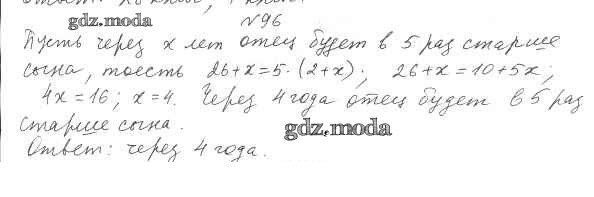 №96
gdz.moda
Пусть через x лет отец будет в 5 раз старше
сына, тоесть 26+x=5·(2+x); 26+x=10+5x;
4x=16; x=4. Через 4 года отец будет в 5 раз
старше сына.
gdz.moda
Ответ: через 4 года.